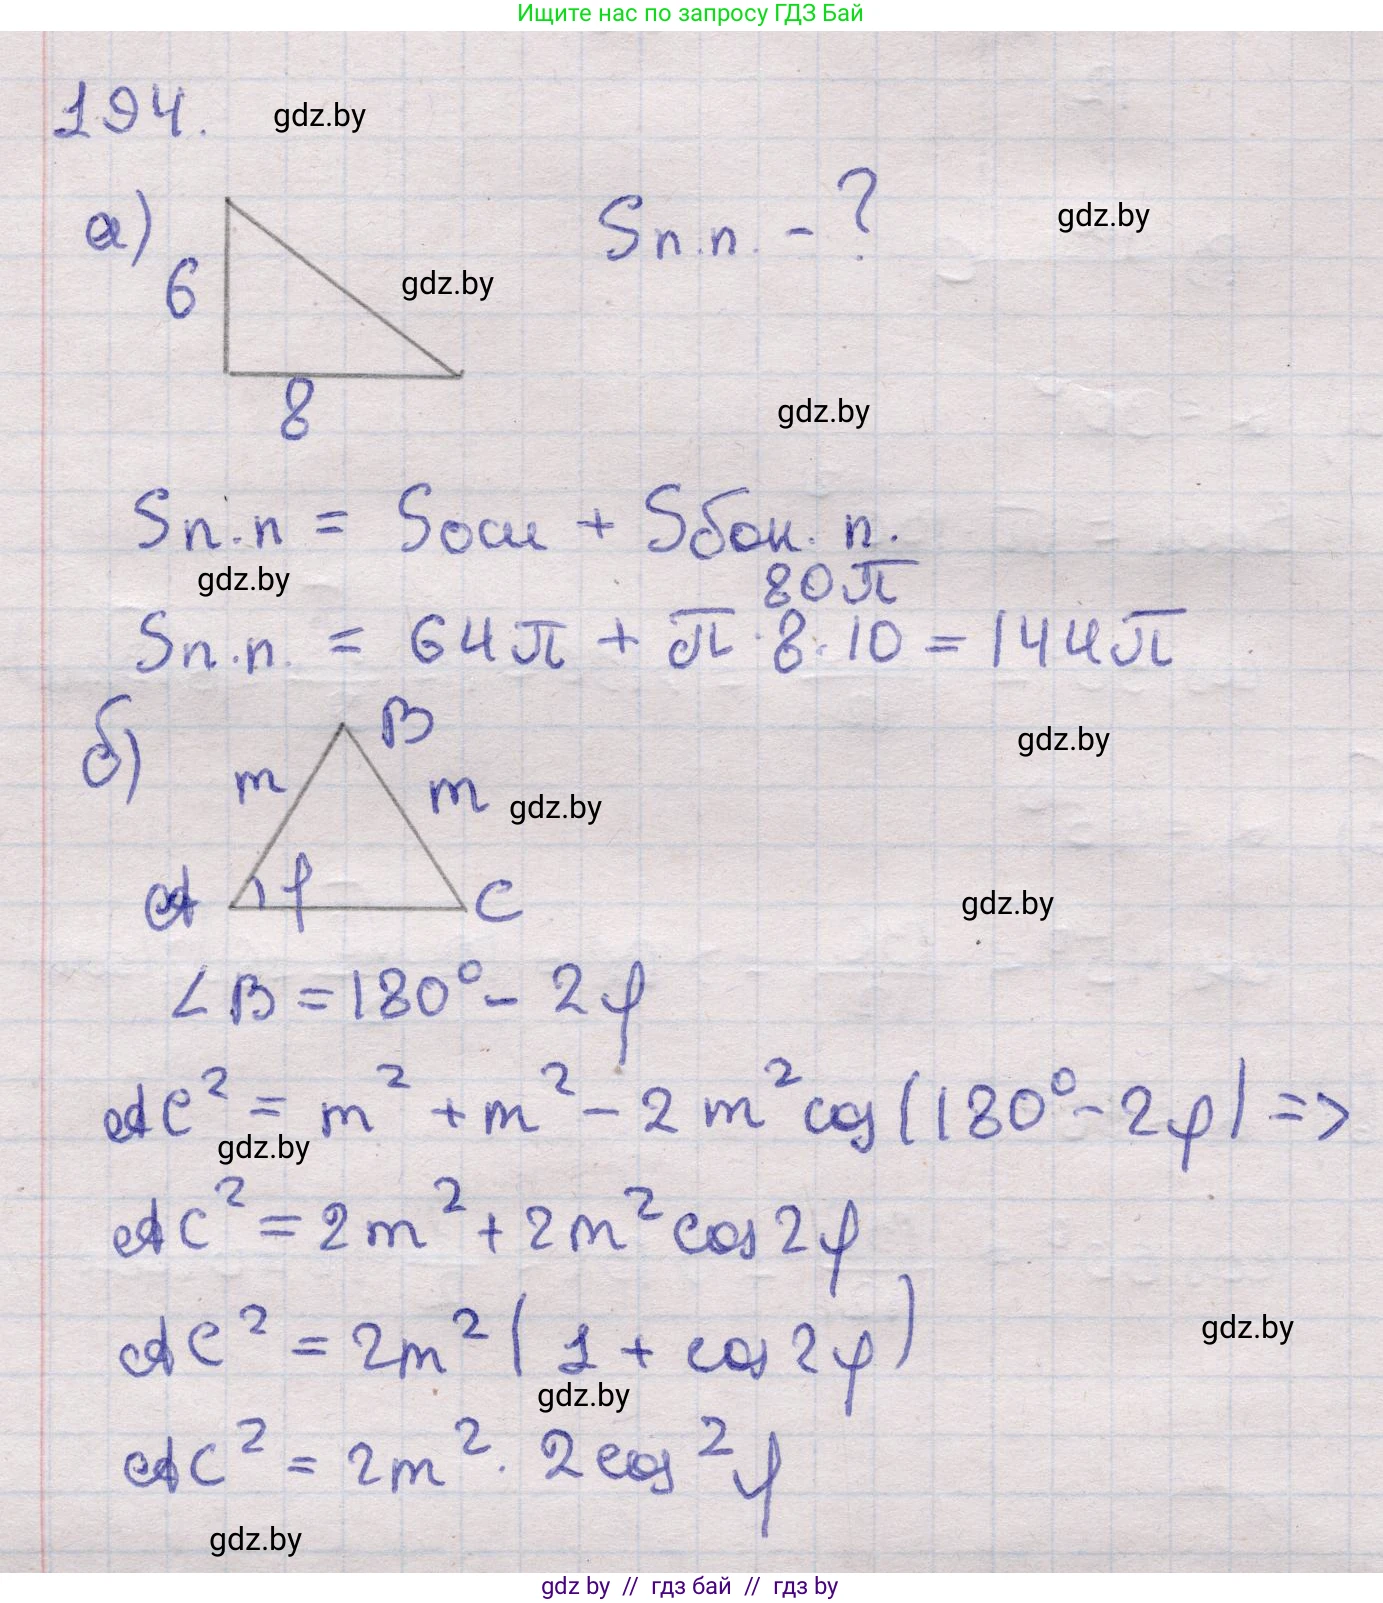 Ищите нас по запросу ГДЗ Бай
194.
gdz.by
а)
6
8
gdz.by
Sп.п. - ?
gdz.by
gdz.by
Sп.п = Sосн + Sбок. п.
gdz.by
80π
Sп.п. = 64π + π · 8 · 10 = 144π
б)
B
m
m
gdz.by
gdz.by
A
φ
C
gdz.by
∠B = 180° - 2φ
AC² = m² + m² - 2m² cos(180° - 2φ) =>
gdz.by
AC² = 2m² + 2m² cos 2φ
AC² = 2m² (1 + cos 2φ)
gdz.by
gdz.by
AC² = 2m² · 2cos² φ
gdz.by
gdz by // гдз бай // гдз by